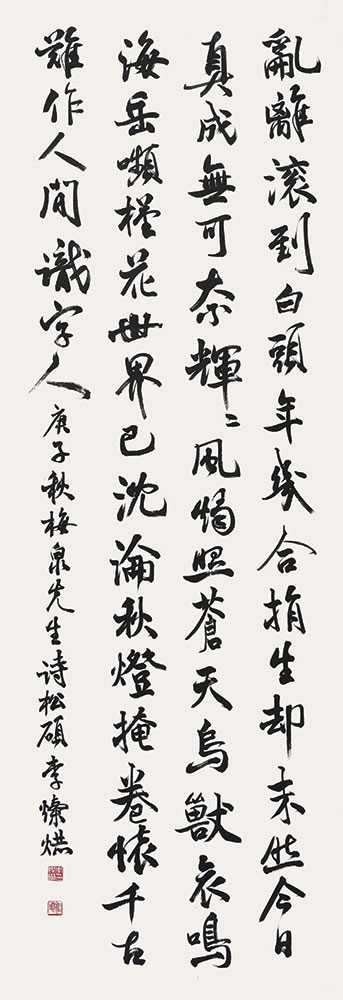 亂離滾到白頭年幾合捐生却未然今日
真成無可奈輝〻風燭照蒼天鳥獸哀鳴
海岳嚬槿花世界已沈淪秋燈掩卷懷千古
難作人間識字人 庚子秋梅泉先生詩松硕李